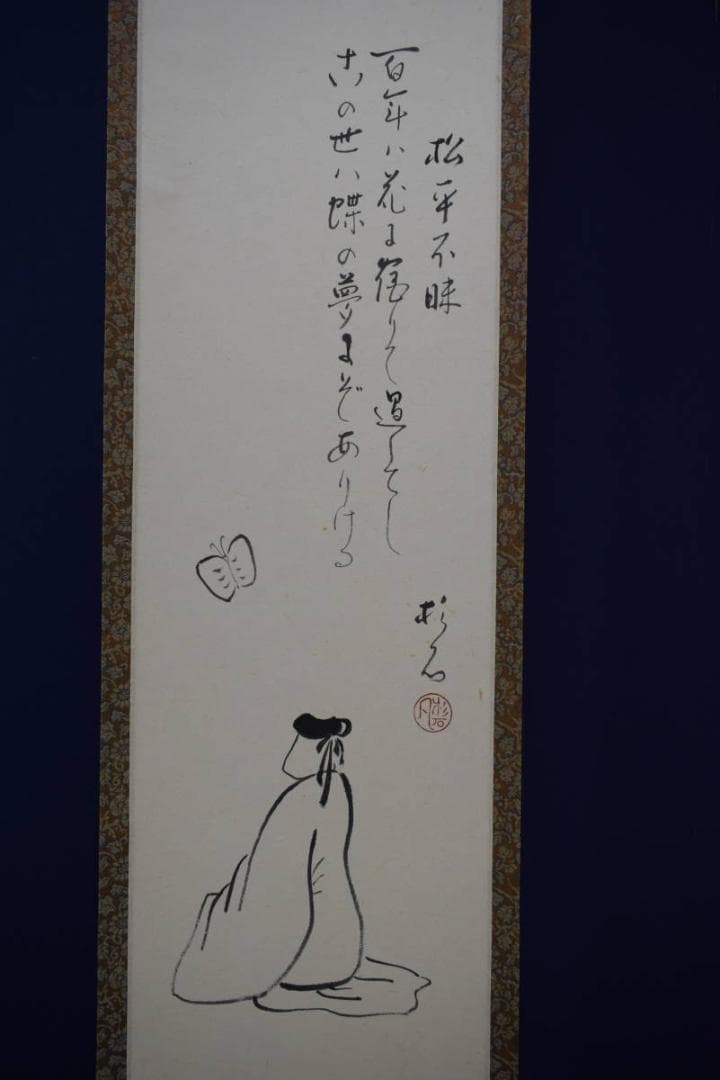 松平不昧
百年ハ花に宿りて過してし
この世ハ蝶の夢にぞありける
杉石